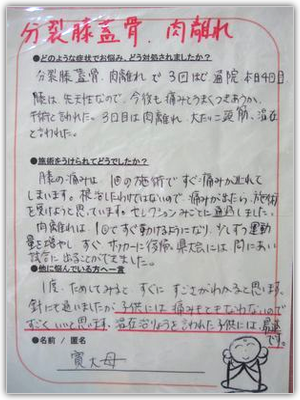 分裂膝蓋骨、肉離れ
●どのような症状でお悩み、どう対処されましたか?
分裂膝蓋骨、肉離れで3回ほど通院 本日4日目。
膝は先天性なので、今後も痛みとうまくつきあうか、
手術と言われた。3日目は肉離れ、大たい二頭筋、温存
と言われた。
●施術をうけられてどうでしたか?
膝の痛みは、1回の施術ですぐ痛みが取れて
しまいます。根治したわけではないので、痛みが出たら、施術
を受けようと思っています。セレクションみごとに通過しました。
肉離れは、1回ですぐ動けるようになり、少しずつ運動
量を増やし すぐ サッカーに復帰。県大会には 間にあい
試合に出ることができました。
●他に悩んでいる方へ一言
1度、ためしてみると すぐに すごさがわかると思います。
針にて迷いましたが、子供には 痛みもともなわないので
すごくいいと思います。温存治りょうを言われた子供には、最適
です。
●名前 / 匿名
寛大母